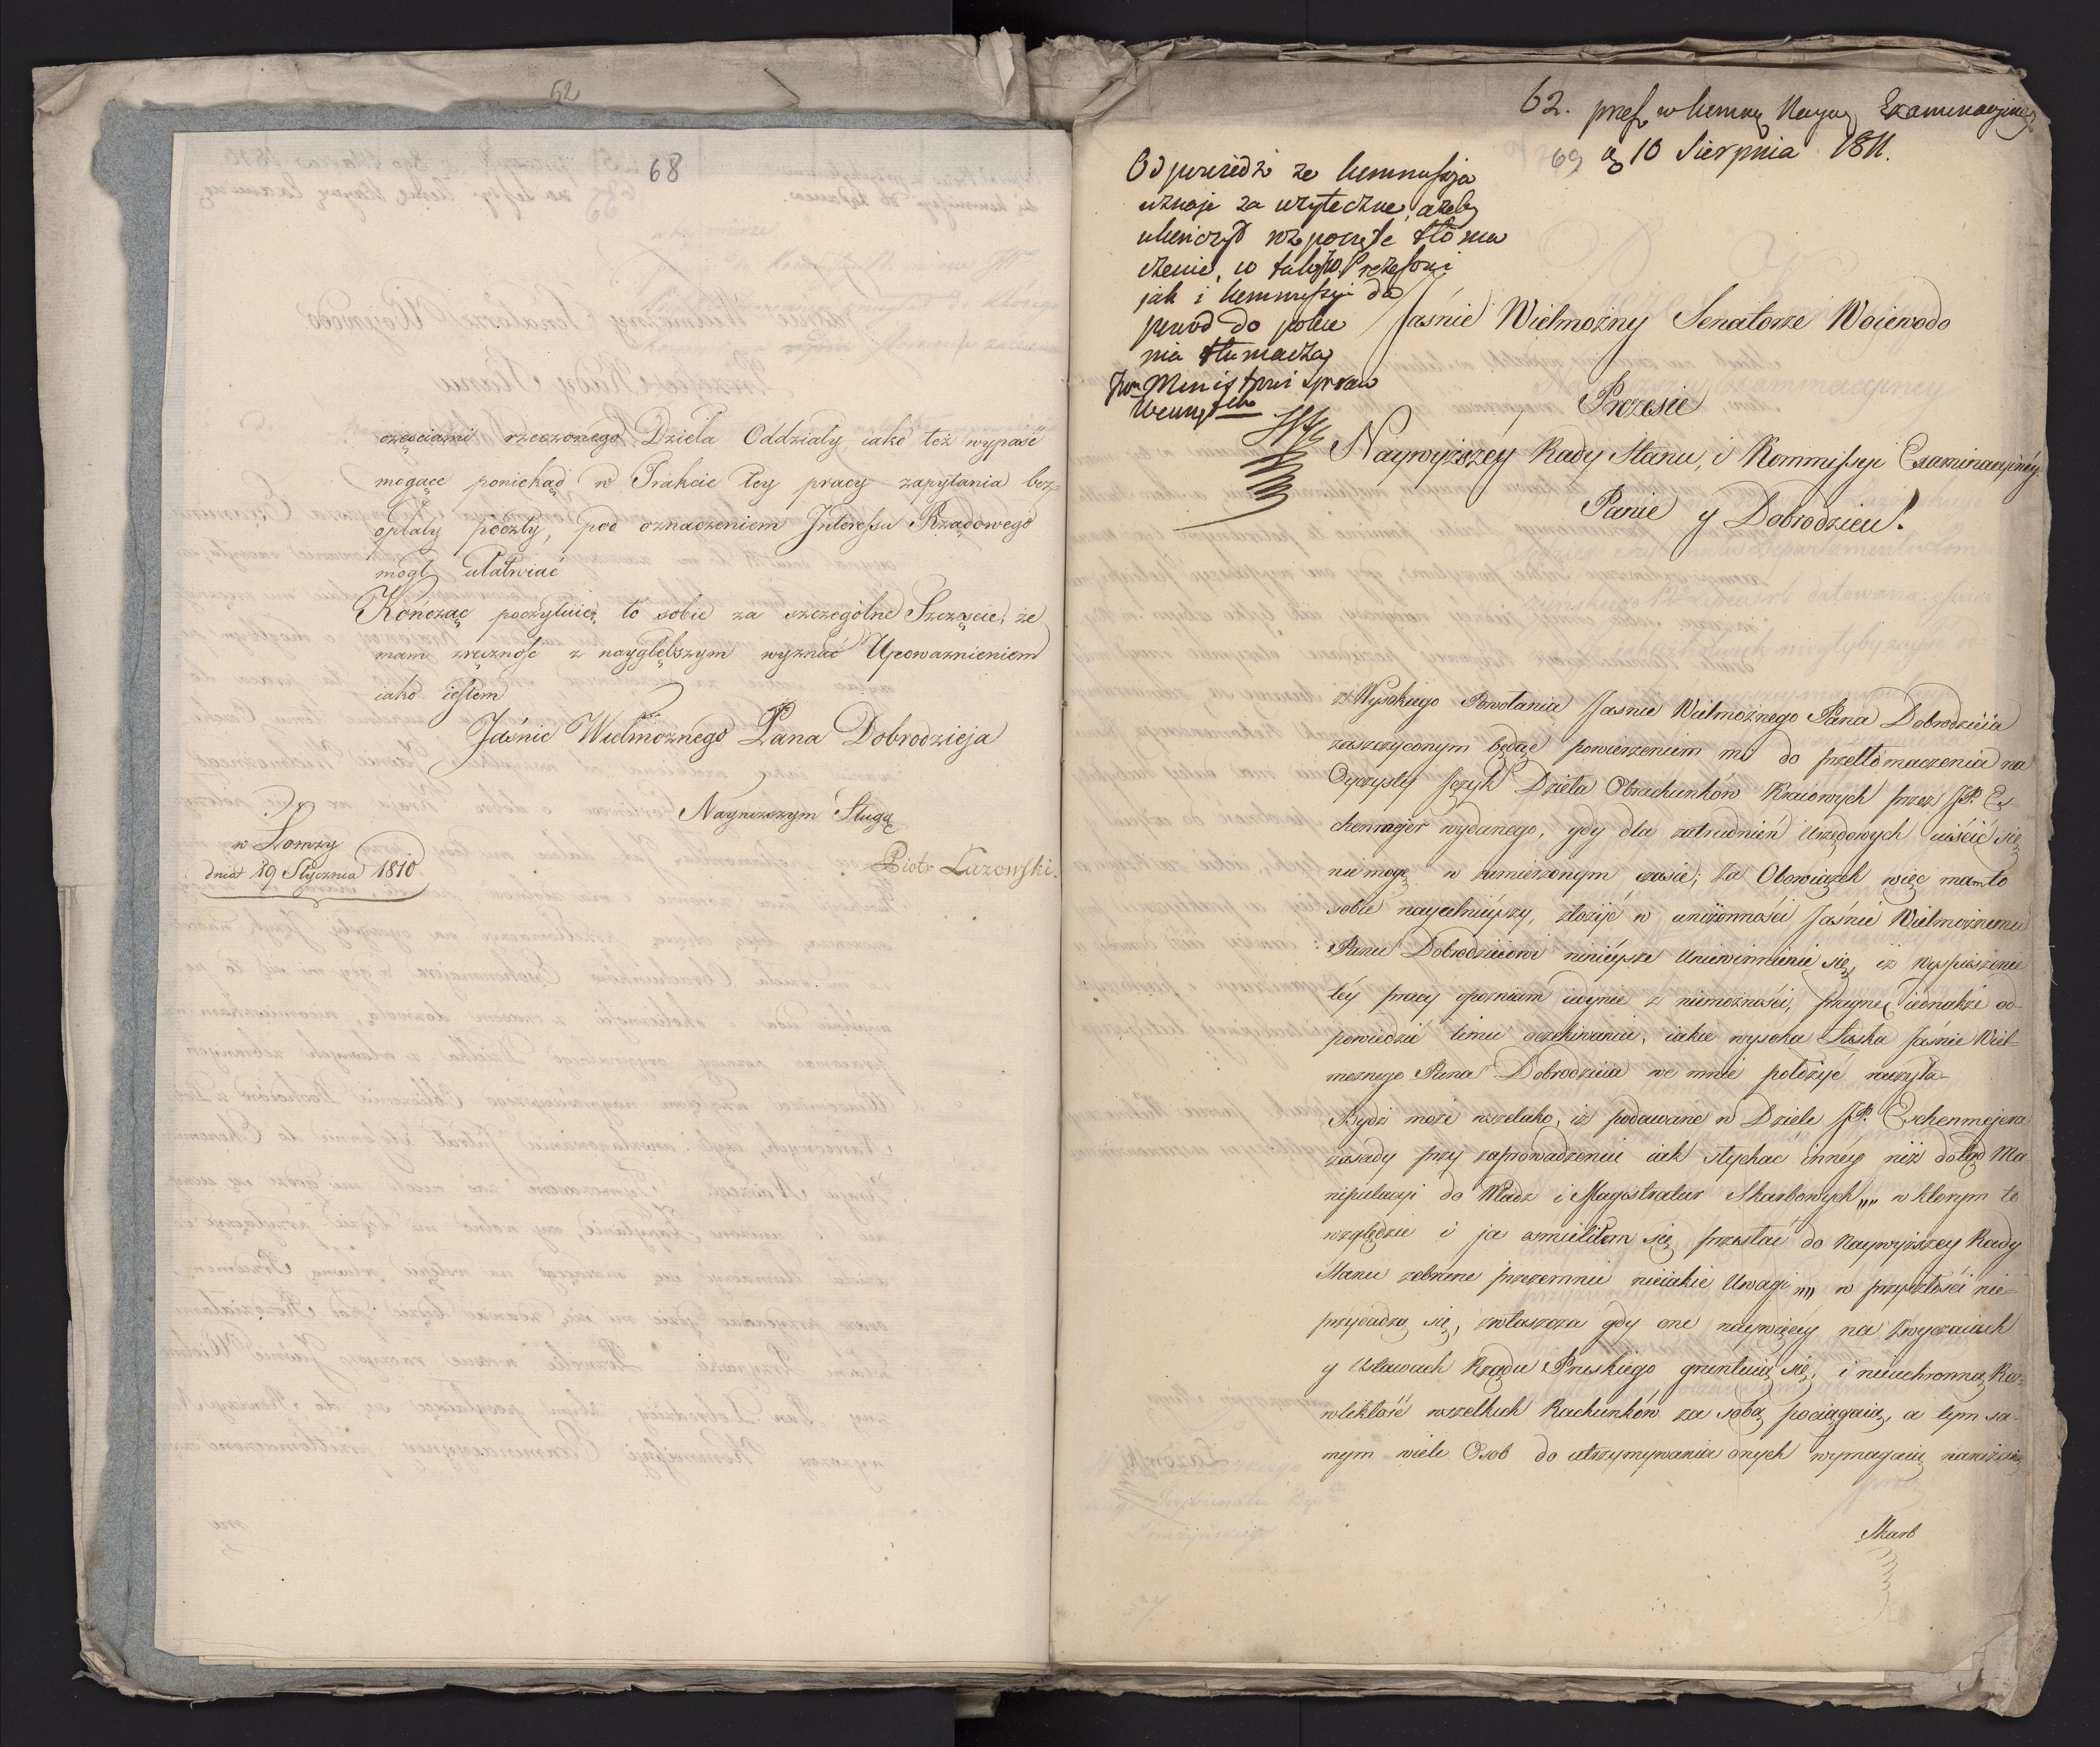 52
68
częściami rzeczonego Dzieła Oddziały, iako też wypaść
mogące poniekąd w Trakcie tey pracy zapytania bez=
opłaty poczty, pod oznaczeniem Interessu Rządowego
mogł ułatwiać
Kończąc poczytuię to sobie za szczególne Szczęście, że
mam zręczność z naygłębszym wyznać Upoważnieniem
iako iestem
Jaśnie Wielmożnego Pana Dobrodzieja
Nayniższym Sługą
w Łomży
dnia 19 Stycznia 1810
Piotr Łazowski.
62. pres. w Kommy Nayw Examinacyiney
69 10 Sierpnia 1811.
Odpowiedzi że kommissja
uznaje za użyteczne, ażeby
ukończył rozpoczęte tłoma
czenie, co tak Prezesowi
jak i kommissyi da
powód do polece
nia tłumacza
Ministrowi spraw
Wewnętch
Jaśnie Wielmożny Senatorze Woiewodo
Prezesie
Naywyższéy Rady Stanu, i Kommissyi Examinacyinéy
Panie y Dobrodzieiu!
z Wysokiego Powołania Jaśnie Wielmożnego Pana Dobrodzieia
zaszczyconym będąc powierzeniem mi do przetłomaczenia na
Oyczysty Język Dzieła Obrachunków Kraiowych przez JP. Es-
chenmajer wydanego, gdy dla zatrudnień Urzędowych uiścić się
nie mogę w zamierzonym czasie; Za Obowiązek więc mam to
sobie naycelnieyszy, złożyć w uniżoności Jaśnie Wielmożnemu
Panu Dobrodzieiowi ninieysze Uniewinnienie się, iż wyspieszenie
tey pracy opóźniam iedynie z niemożności, pragnę iednakże od-
powiedzieć temu oczekiwaniu, iakie wysoka Łaska Jaśnie Wiel-
możnego Pana Dobrodzieia we mnie położyć raczyła.
Bydź może wszelako, iż podawane w Dziele JP. Eschenmejera
zasady przy zaprowadzeniu iak słychać innéy niż dotąd Ma-
nipulacyi do Władz i Magistratur Skarbowych „„ w ktorym to
względzie i ja ośmieliłem się przesłać do Naywyższey Rady
Stanu zebrane przezemnie nieiakie Uwagi „„ w przyszłości nie-
przydadzą się, zwłaszcza gdy one naywięcéy na Zwyczaiach
y Ustawach Rządu Pruskiego gruntuią się, i nieuchronną Roz-
wlekłość wszelkich Rachunków za sobą pociągaią, a tym sa-
mym wiele Osob do utrzymywania onych wymagaią
Skarb